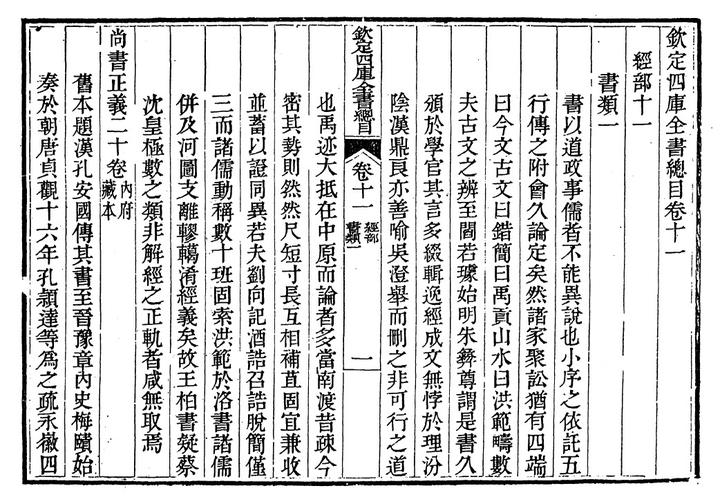 欽定四庫全書總目卷十一
經部十一
書類一
書以道政事儒者不能異說也小序之依託五
行傳之附會久論定矣然諸家聚訟猶有四端
曰今文古文曰錯簡曰禹貢山水曰洪範疇數
夫古文之辨至閻若璩始明朱彝尊謂是書久
頒於學官其言多綴輯逸經成文無悖於理汾
陰漢鼎良亦善喻吳澄舉而刪之非可行之道
欽定四庫全書總目 卷十一 經部 書類一 一
也禹迹大抵在中原而論者多當南渡昔疎今
密其勢則然然尺短寸長互相補苴固宜兼收
並蓄以證同異若夫劉向記酒誥召誥脫簡僅
三而諸儒動稱數十班固索洪範於洛書諸儒
併及河圖支離轇轕淆經義矣故王柏書疑蔡
沈皇極數之類非解經之正軌者咸無取焉
尚書正義二十卷 內府藏本
舊本題漢孔安國傳其書至晉豫章內史梅賾始
奏於朝唐貞觀十六年孔穎達等為之疏永徽四